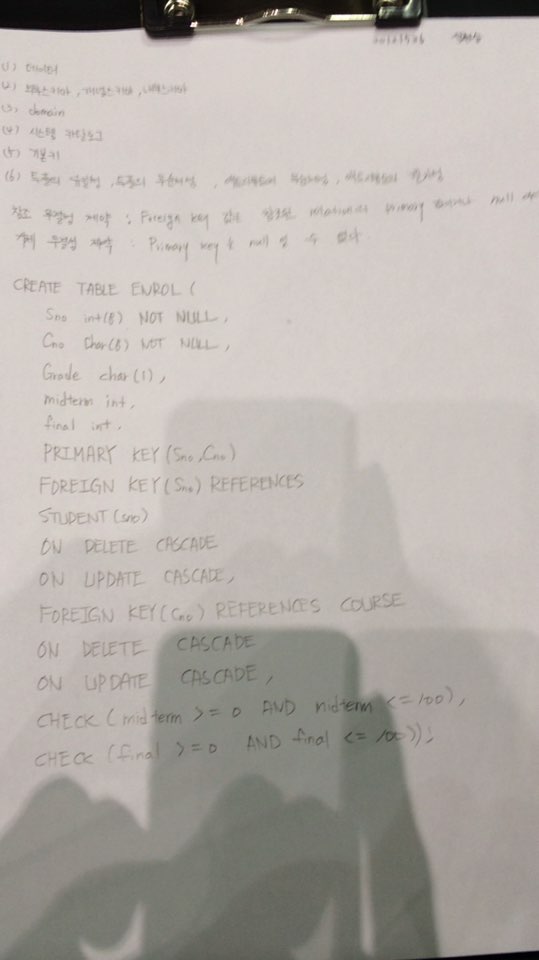 (1) 데이터
(2) 외부스키마, 개념스키마, 내부스키마
(3) domain
(4) 시스템 카탈로그
(5) 기본키
(6) 튜플의 유일성, 튜플의 무순서성, 애트리뷰트의 무순서성, 애트리뷰트의 원자성
참조 무결성 제약 : Foreign key 값은 참조된 relation의 primary null
개체 무결성 제약 : Primary key는 null 일 수 없다.
CREATE TABLE ENROL (
Sno int(8) NOT NULL,
Cno Char(8) NOT NULL,
Grade char(1),
midterm int,
final int,
PRIMARY KEY(Sno,Cno)
FOREIGN KEY(Sno) REFERENCES
STUDENT(sno)
ON DELETE CASCADE
ON UPDATE CASCADE,
FOREIGN KEY(Cno) REFERENCES COURSE
ON DELETE CASCADE
ON UPDATE CASCADE,
CHECK(midterm >= 0 AND midterm <= 100),
CHECK (final >= 0 AND final <= 100));